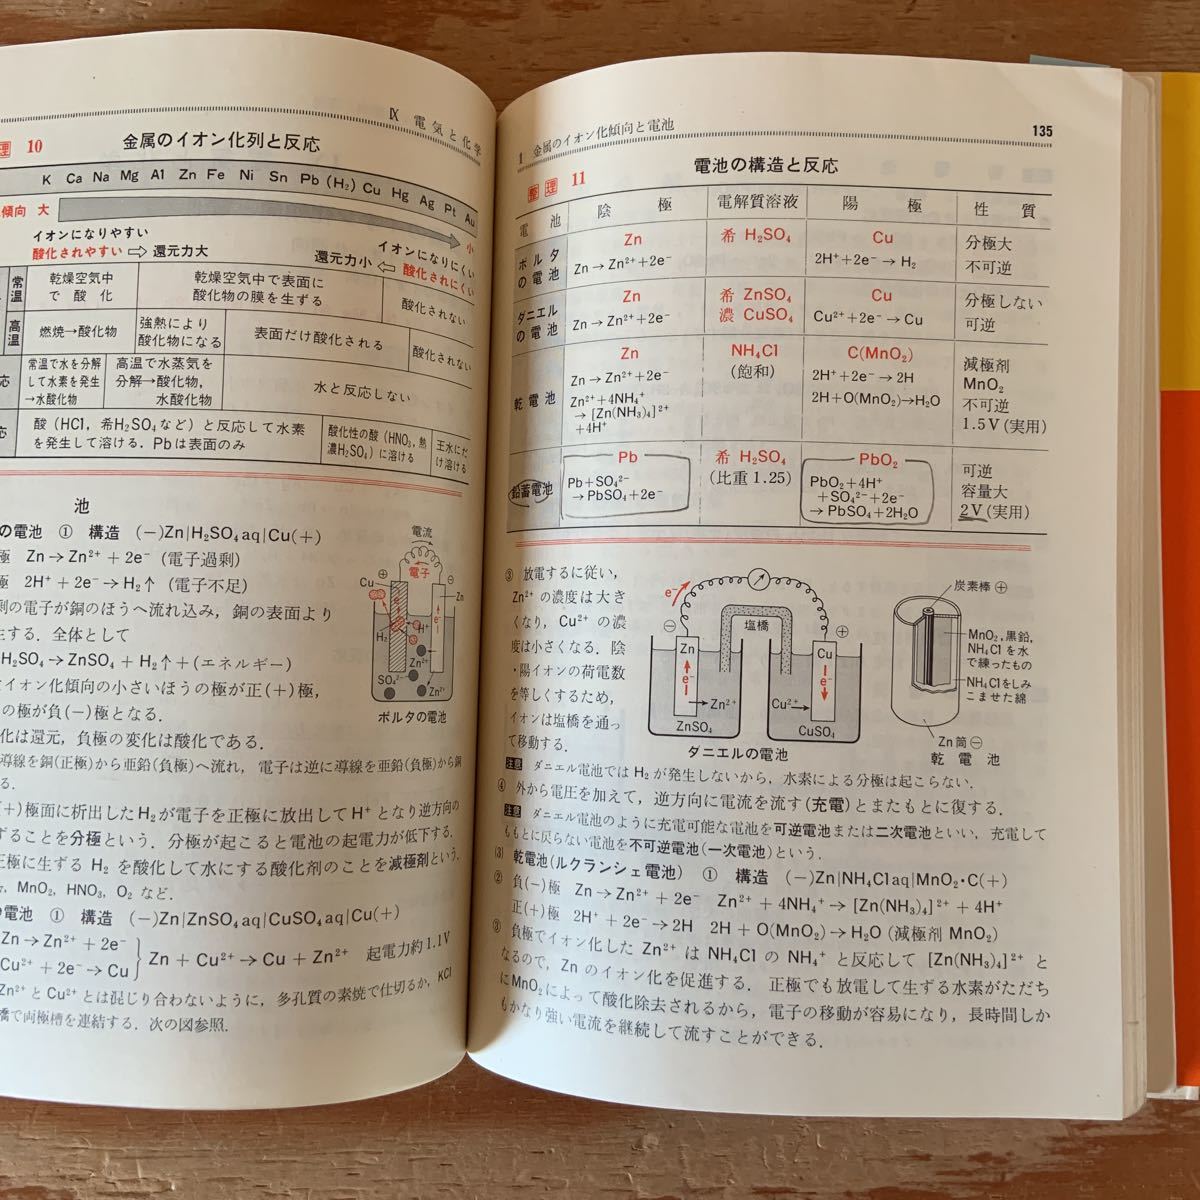 Ⅸ 電気と化学
理 10 金属のイオン化列と反応
K Ca Na Mg Al Zn Fe Ni Sn Pb (H₂) Cu Hg Ag Pt Au
傾向 大
小
イオンになりやすい
酸化されやすい ⇨ 還元力大
イオンになりにくい
還元力小 ⇦ 酸化されにくい
常温
乾燥空気中で酸化
乾燥空気中で表面に酸化物の膜を生ずる
酸化されない
高温
燃焼→酸化物
強熱により酸化物になる
表面だけ酸化される
酸化されない
応
常温で水を分解して水素を発生→水酸化物
高温で水蒸気を分解→酸化物，水酸化物
水と反応しない
応
酸（HCl，希H₂SO₄など）と反応して水素を発生して溶ける．Pbは表面のみ
酸化性の酸（HNO₃，熱濃H₂SO₄）に溶ける
王水にだけ溶ける
池
の電池 ① 構造 (−)Zn|H₂SO₄aq|Cu(+)
極 Zn→Zn²⁺＋2e⁻（電子過剰）
極 2H⁺＋2e⁻→H₂↑（電子不足）
剰の電子が銅のほうへ流れ込み，銅の表面より
生する．全体として
H₂SO₄→ZnSO₄＋H₂↑＋(エネルギー)
イオン化傾向の小さいほうの極が正(＋)極，
の極が負(−)極となる．
化は還元，負極の変化は酸化である．
電流
電子
⊕
⊖
Cu
Zn
e⁻
H₂
H⁺
Zn²⁺
SO₄²⁻
Zn²⁺
ボルタの電池
導線を銅(正極)から亜鉛(負極)へ流れ，電子は逆に導線を亜鉛(負極)から銅
る．
(＋)極面に析出したH₂が電子を正極に放出してH⁺となり逆方向の
ずることを分極という．分極が起こると電池の起電力が低下する．
正極に生ずる H₂ を酸化して水にする酸化剤のことを減極剤という．
，MnO₂，HNO₃，O₂ など．
の電池 ① 構造 (−)Zn|ZnSO₄aq|CuSO₄aq|Cu(+)
Zn→Zn²⁺＋2e⁻
Cu²⁺＋2e⁻→Cu
Zn＋Cu²⁺→Cu＋Zn²⁺ 起電力約1.1V
Zn²⁺とCu²⁺とは混じり合わないように，多孔質の素焼で仕切るか，KCl
橋で両極槽を連結する．次の図参照．
1 金属のイオン化傾向と電池
135
整理 11 電池の構造と反応
電池 陰極 電解質溶液 陽極 性質
ボルタの電池
Zn
Zn→Zn²⁺＋2e⁻
希 H₂SO₄
Cu
2H⁺＋2e⁻→H₂
分極大
不可逆
ダニエルの電池
Zn
Zn→Zn²⁺＋2e⁻
希 ZnSO₄
濃 CuSO₄
Cu
Cu²⁺＋2e⁻→Cu
分極しない
可逆
乾電池
Zn
Zn→Zn²⁺＋2e⁻
Zn²⁺＋4NH₄⁺
→[Zn(NH₃)₄]²⁺
＋4H⁺
NH₄Cl
(飽和)
C(MnO₂)
2H⁺＋2e⁻→2H
2H＋O(MnO₂)→H₂O
減極剤
MnO₂
不可逆
1.5V(実用)
鉛蓄電池
Pb
Pb＋SO₄²⁻
→PbSO₄＋2e⁻
希 H₂SO₄
(比重1.25)
PbO₂
PbO₂＋4H⁺
＋SO₄²⁻＋2e⁻
→PbSO₄＋2H₂O
可逆
容量大
2V(実用)
③ 放電するに従い，
Zn²⁺の濃度は大き
くなり，Cu²⁺の濃
度は小さくなる．陰
・陽イオンの荷電数
を等しくするため，
イオンは塩橋を通っ
て移動する．
e⁻
塩橋
⊖
⊕
Zn
Cu
e⁻
e⁻
Zn²⁺
Cu²⁺
ZnSO₄
CuSO₄
ダニエルの電池
炭素棒⊕
MnO₂，黒鉛，
NH₄Clを水
で練ったもの
NH₄Clをしみ
こませた綿
Zn筒⊖
乾電池
注意 ダニエル電池では H₂ が発生しないから，水素による分極は起こらない．
④ 外から電圧を加えて，逆方向に電流を流す(充電)とまたもとに復する．
注意 ダニエル電池のように充電可能な電池を可逆電池または二次電池といい，充電して
ももとに戻らない電池を不可逆電池(一次電池)という．
(3) 乾電池(ルクランシェ電池) ① 構造 (−)Zn|NH₄Claq|MnO₂・C(+)
② 負(−)極 Zn→Zn²⁺＋2e⁻ Zn²⁺＋4NH₄⁺→[Zn(NH₃)₄]²⁺＋4H⁺
正(＋)極 2H⁺＋2e⁻→2H 2H＋O(MnO₂)→H₂O(減極剤 MnO₂)
③ 負極でイオン化した Zn²⁺ は NH₄Cl の NH₄⁺ と反応して [Zn(NH₃)₄]²⁺ と
なるので，Zn のイオン化を促進する．正極でも放電して生ずる水素がただち
にMnO₂によって酸化除去されるから，電子の移動が容易になり，長時間しか
もかなり強い電流を継続して流すことができる．